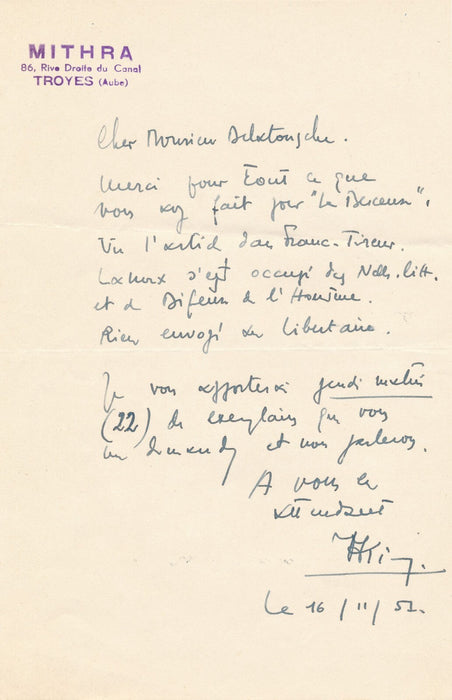 MITHRA
86, Rive Droite du Canal
TROYES (Aube)
Cher Monsieur
Merci pour tout ce que
vous avez fait pour "La Berceuse".
Vu l'article dans Franc-Tireur.
s'est occupé des Nelles. litt.
et de Défense de l'Homme.
Rien envoyé au libertaire.
Je vous apporterai jeudi matin
(22) des exemplaires que vous
me demandez et nous parlerons.
A vous en
attendant
Le 16/11/51.